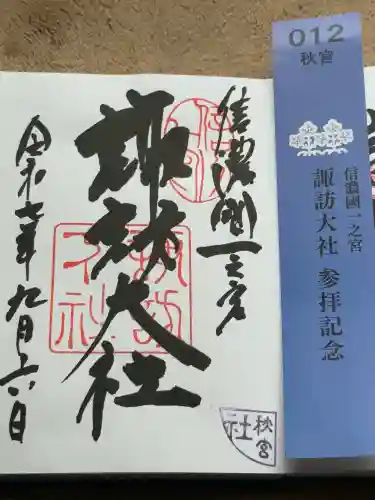 信濃國一之宮
諏訪大社
令和七年九月二六日
秋宮
社
012
秋宮
信濃國一之宮
諏訪大社 参拝記念